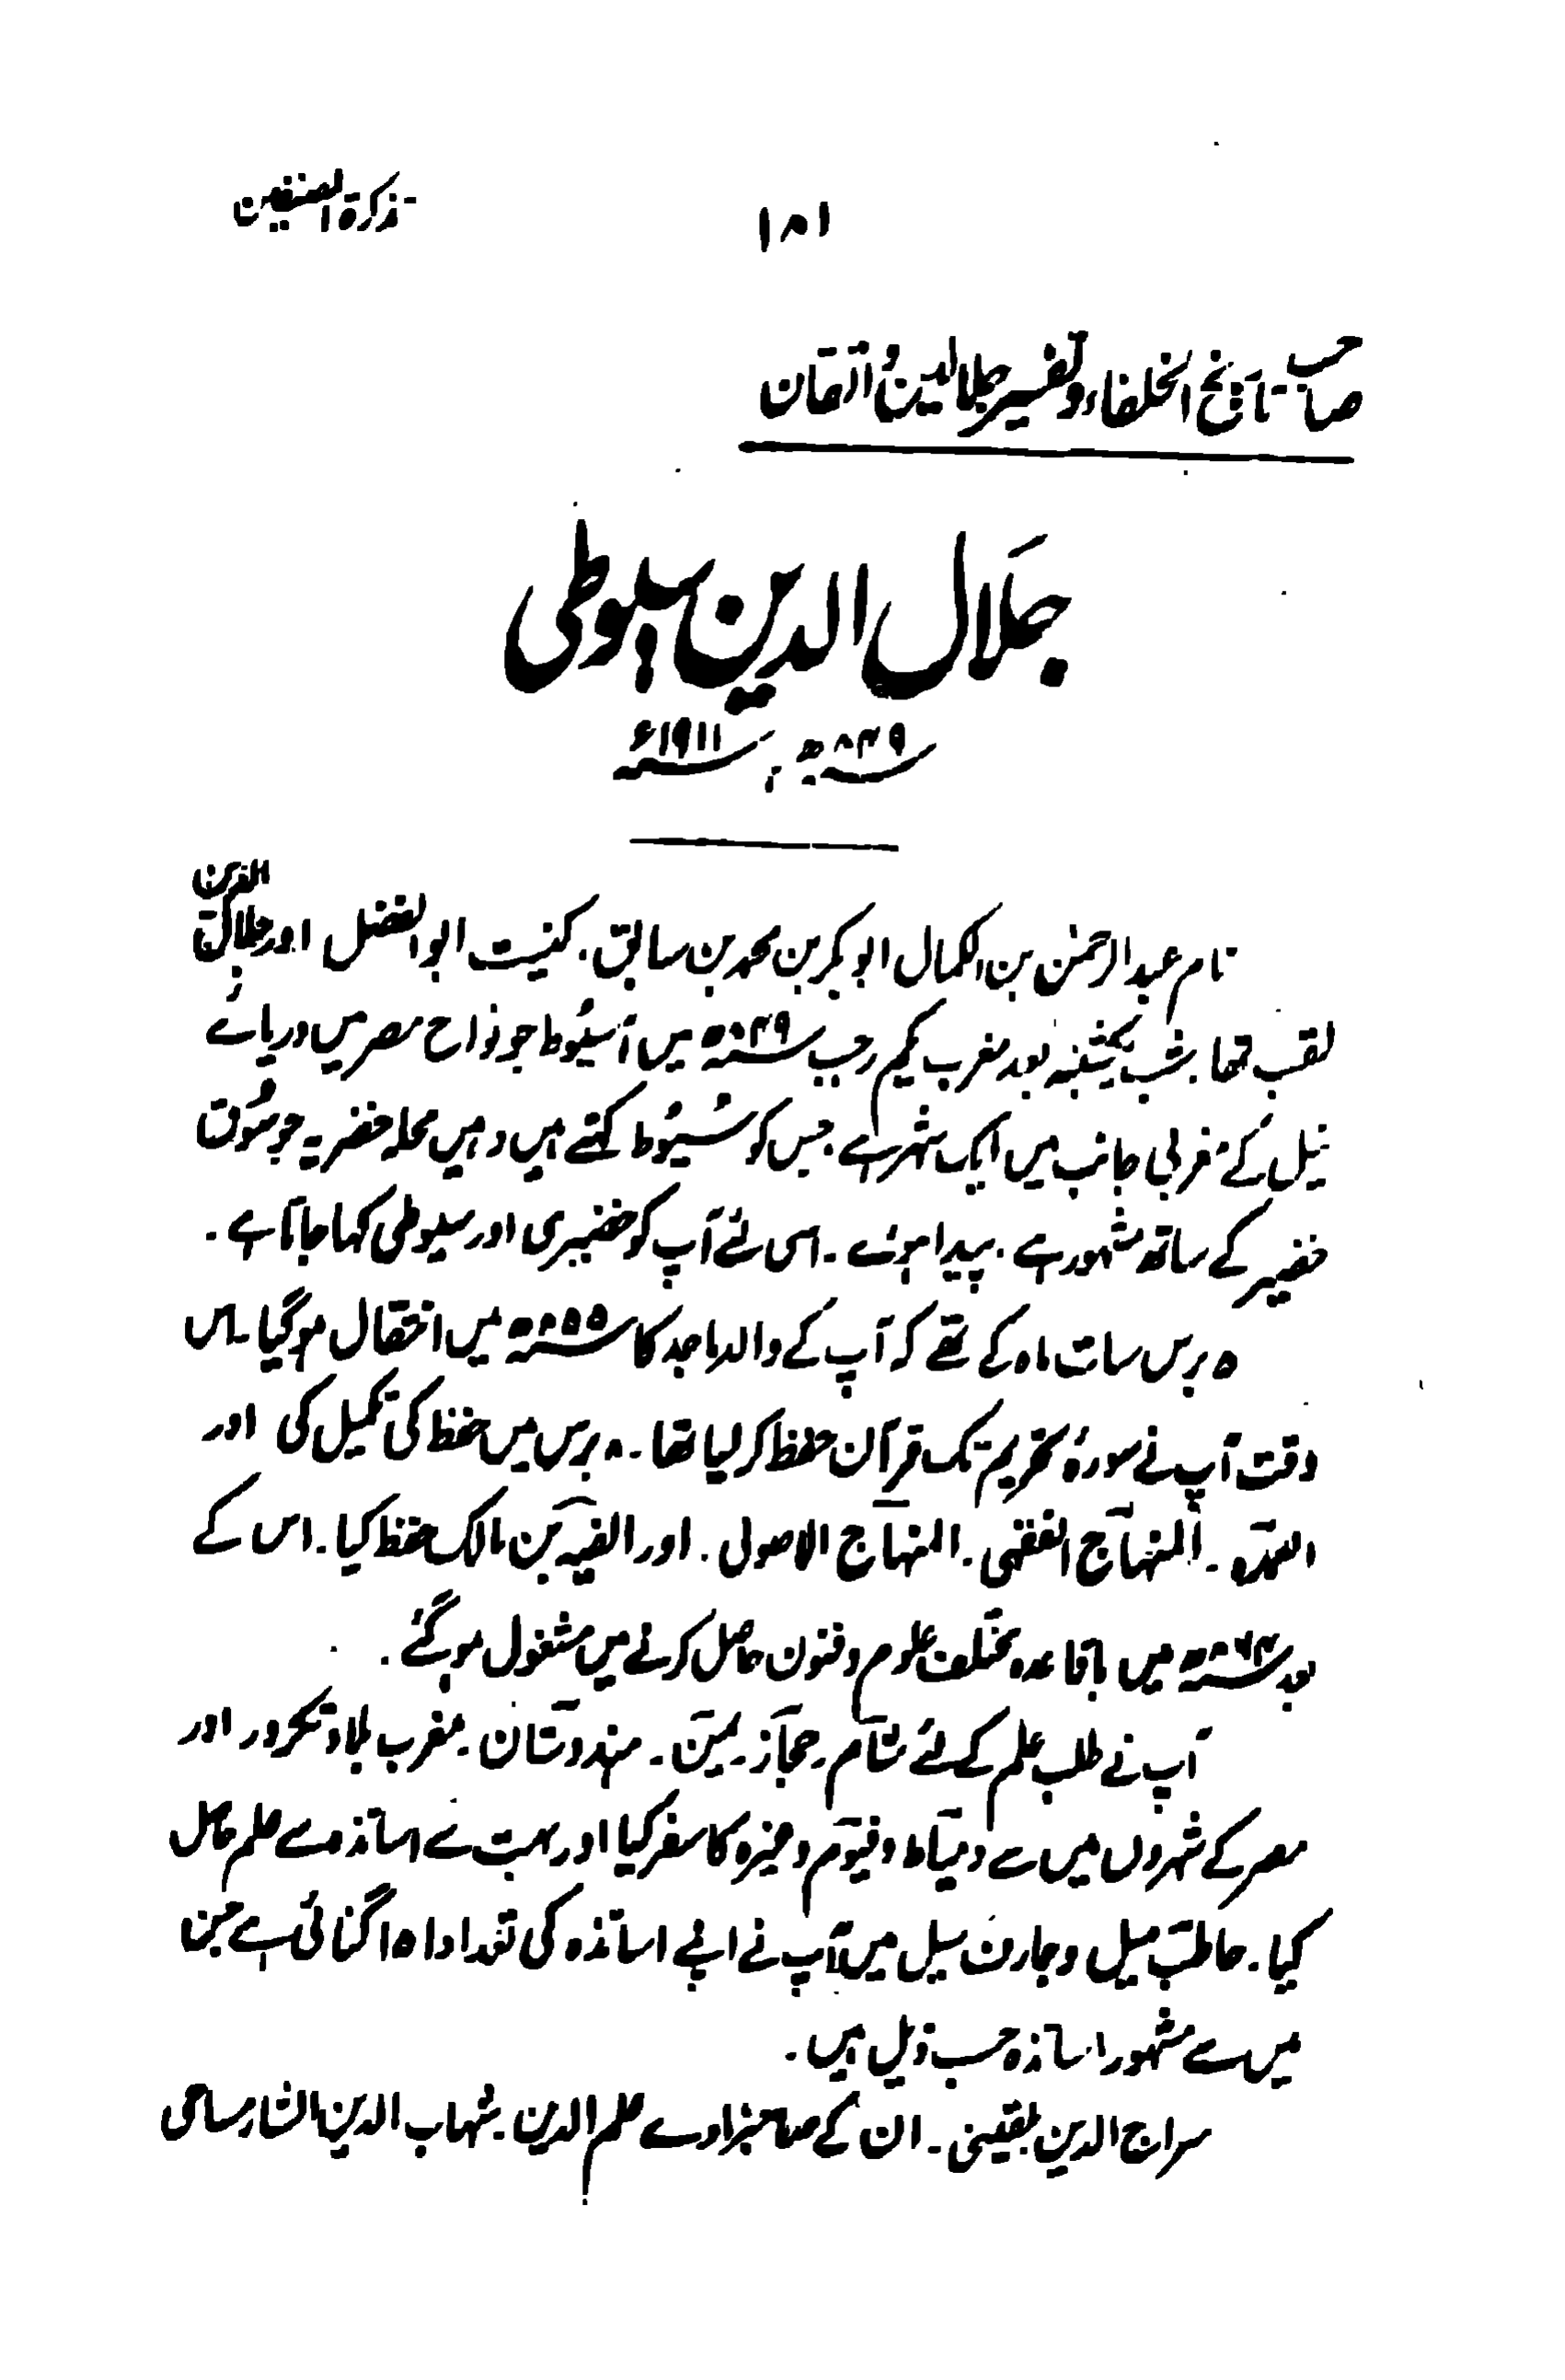 تذکرۃ المصنفین
۱۸۱
صاحب تاریخ الخلفاء و تفسیر جلالین و اتقان
جلال الدین سیوطی
۸۴۹ھ ، ۹۱۱ھ
نام عبدالرحمٰن بن الکمال ابوبکر بن محمد بن سابق. کنیت ابوالفضل اور جلال الدین
لقب تھا. شب یکشنبہ بعد مغرب یکم رجب ۸۴۹ھ میں اَسیُوط جو نواح مصر میں دریائے
نیل کے مغربی جانب میں ایک شہر ہے. جس کو سُیُوط کہتے ہیں وہیں محلہ خضریہ جو سُوق
خضیر کے ساتھ مشہور ہے. پیدا ہوئے. اسی لئے آپ کو خضیری اور سیوطی کہا جاتا ہے.
۵ برس سات ماہ کے تھے کہ آپ کے والد ماجد کا ۸۵۵ھ میں انتقال ہوگیا. اس
وقت آپ نے سورۂ تحریم تک قرآن حفظ کرلیا تھا. ۸ برس میں حفظ کی تکمیل کی اور
العمدہ. المنہاج الفقہی. المنہاج الاصولی. اور الفیہ بن مالک حفظ کیا. اس کے
بعد ۸۶۴ھ میں باقاعدہ مختلف علوم و فنون حاصل کرنے میں مشغول ہوگئے.
آپ نے طلب علم کے لئے شام. حجاز. یمن. ہندوستان. مغرب بلاد تکرور اور
مصر کے شہروں میں سے دمیاط و فیوم وغیرہ کا سفر کیا اور بہت سے اساتذہ سے علم حاصل
کیا. حاطب لیل و جارف سیل میں آپ نے اپنے اساتذہ کی تعداد ۱۵۱ گنائی ہے جن
میں سے مشہور اساتذہ حسب ذیل ہیں.
سراج الدین بلقینی. ان کے صاحبزادے علم الدین. شہاب الدین الشارمساحی